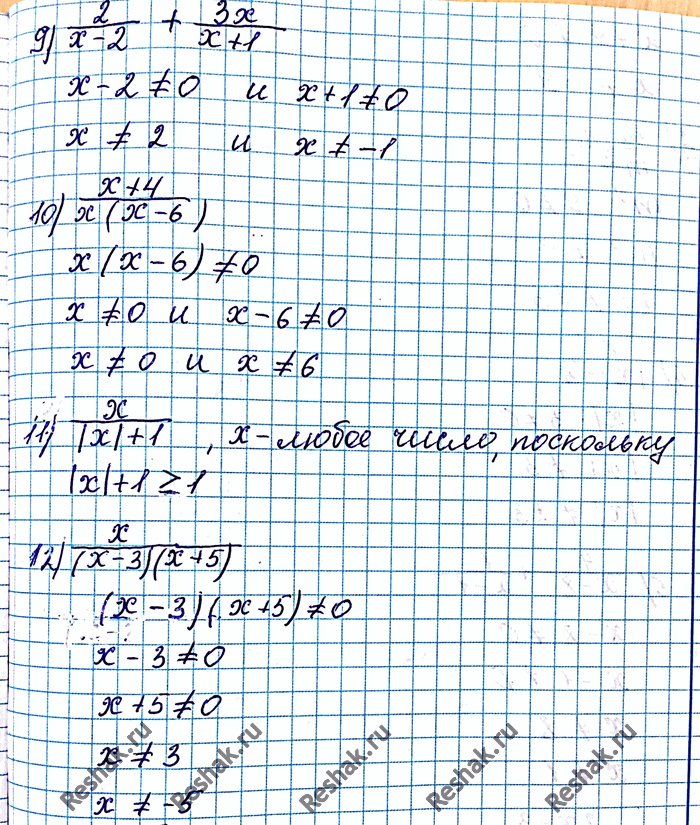 9) 2/(x-2) + 3x/(x+1)
x-2≠0 и x+1≠0
x ≠ 2 и x ≠ -1
10) (x+4)/(x(x-6))
x(x-6)≠0
x ≠0 и x-6≠0
x ≠ 0 и x ≠6
11) x/(|x|+1) , x-любое число, поскольку
|x|+1 ≥ 1
12) x/((x-3)(x+5))
(x-3)(x+5)≠0
x-3≠0
x+5≠0
x ≠ 3
x ≠ -5
Reshak.ru Reshak.ru Reshak.ru Reshak.ru Reshak.ru